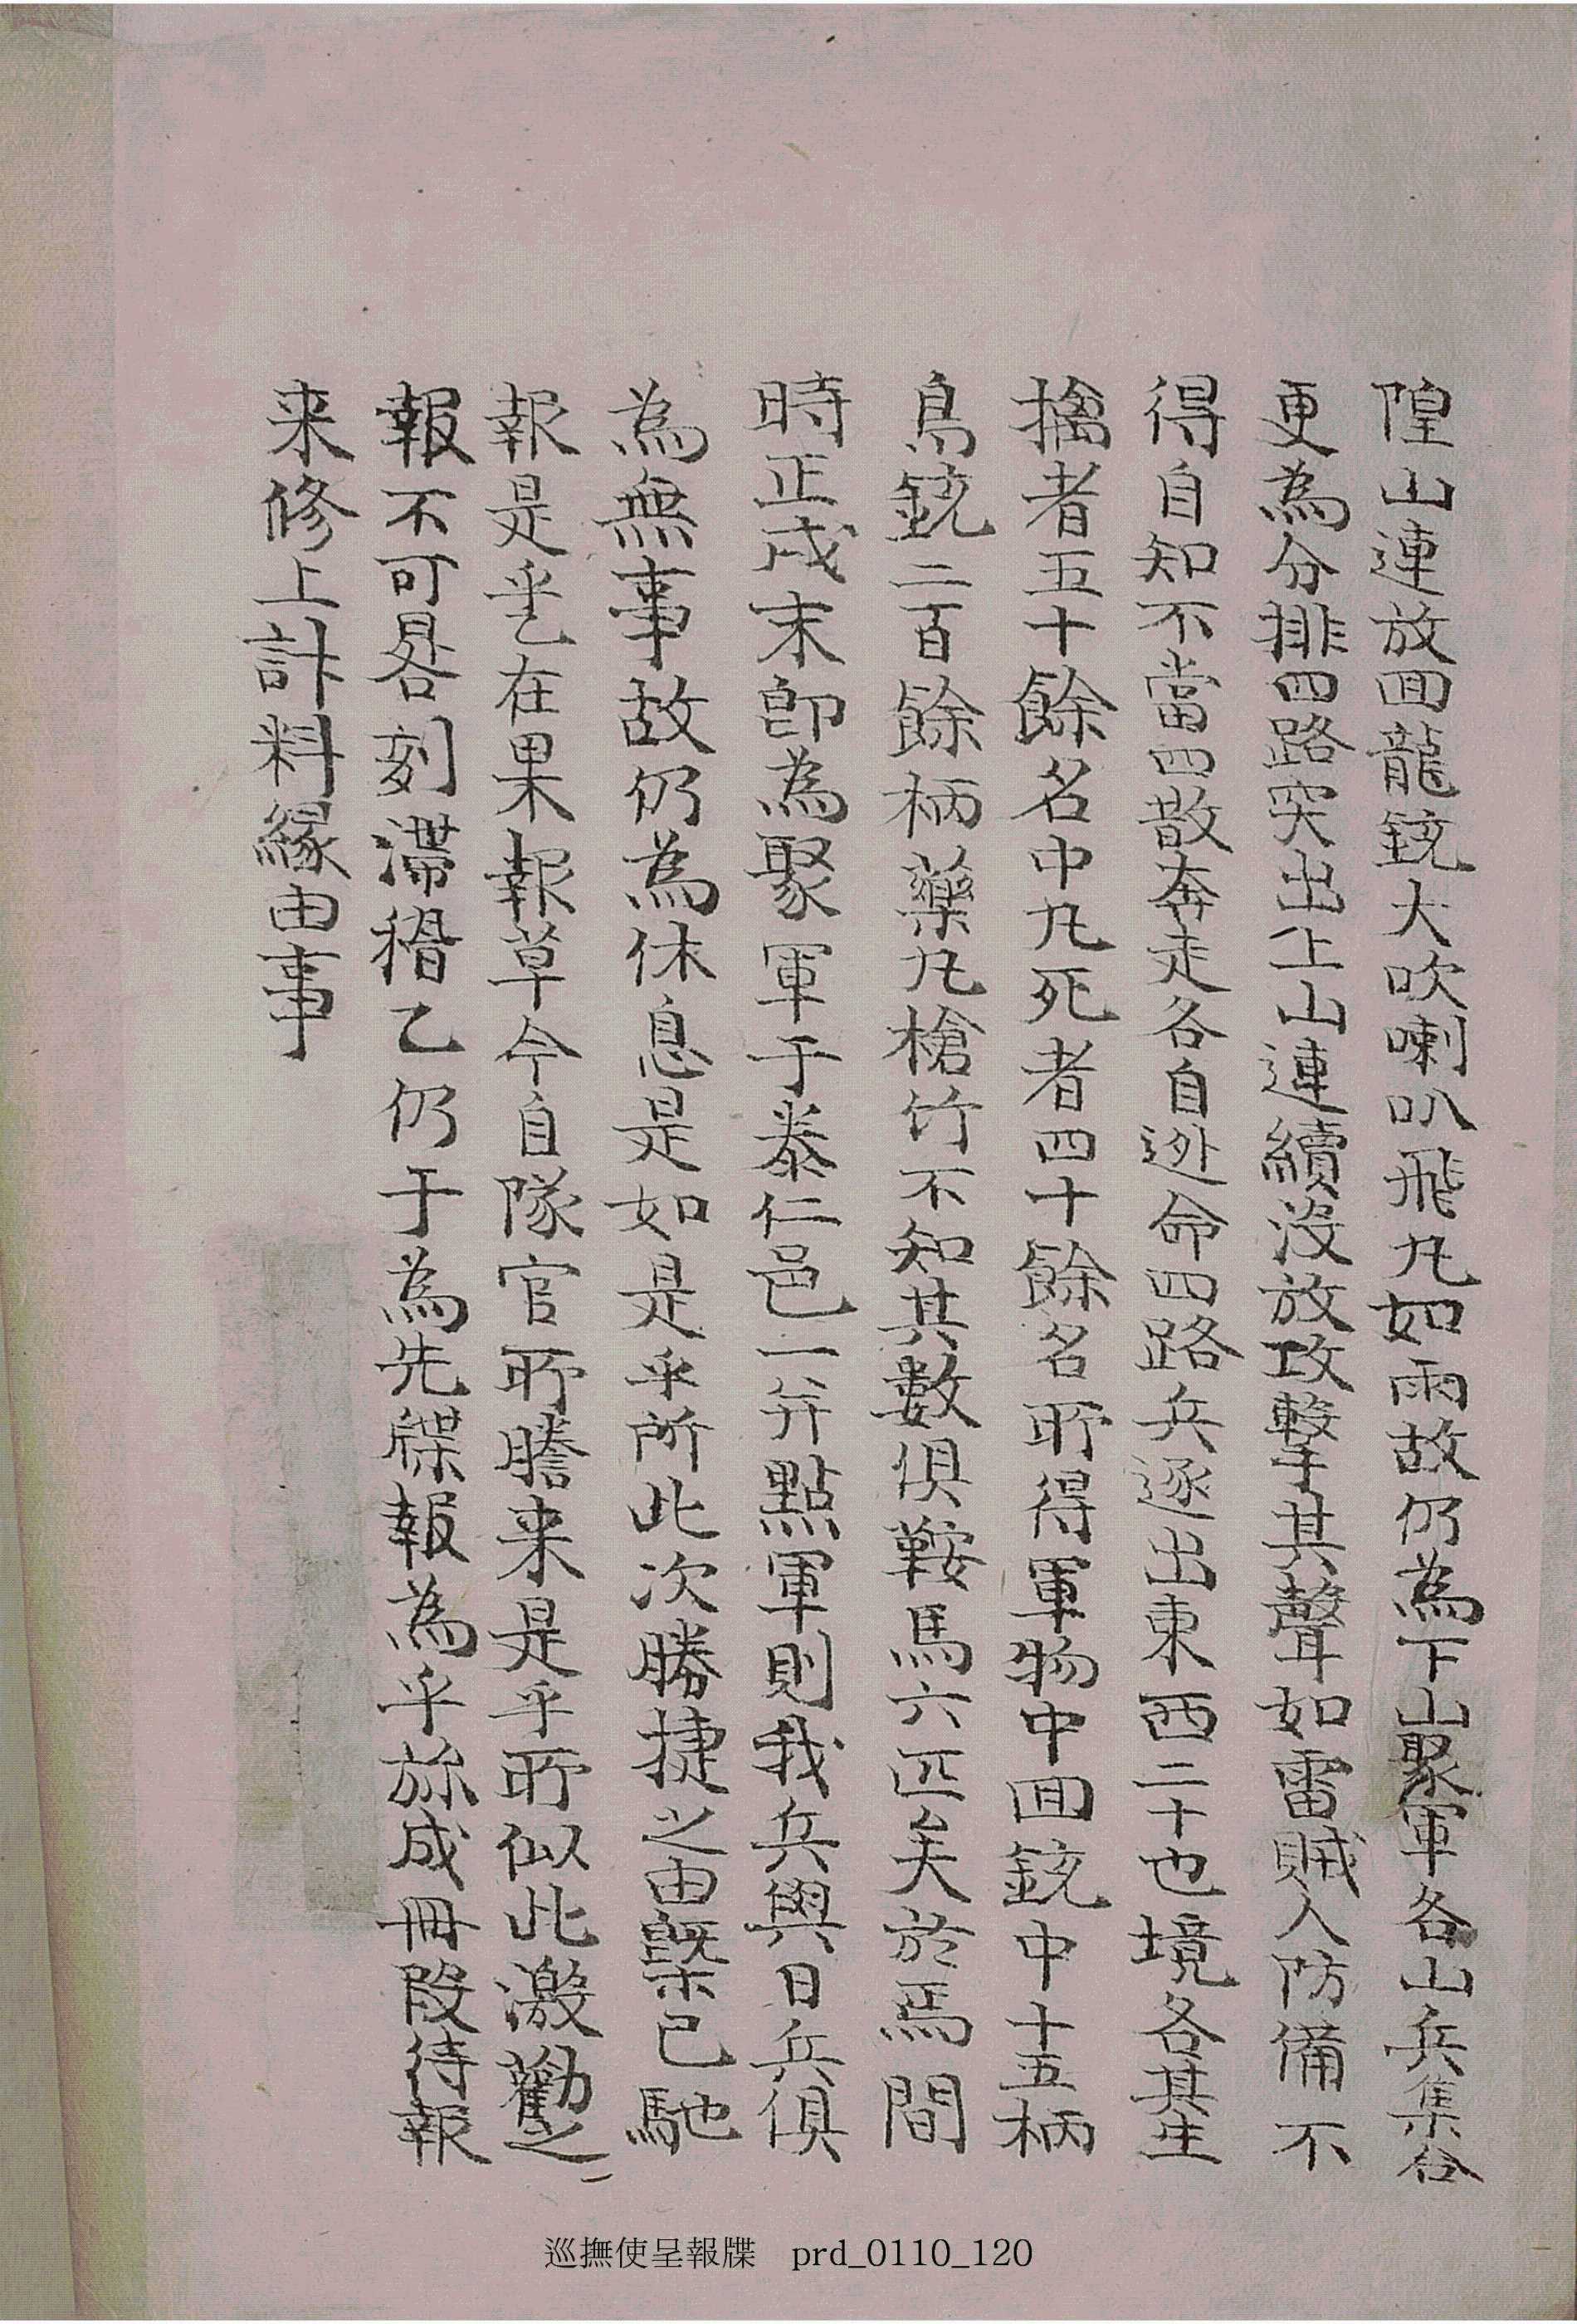 隍山連放回龍銃大吹喇叭飛丸如雨故仍為下山聚軍各山兵集合
更為分排四路突出上山連續沒放攻擊其聲如雷賊人防備不
得自知不當四散奔走各自逃命四路兵逐出東西二十也境各其生
擒者五十餘名中丸死者四十餘名所得軍物中回銃中十五柄
鳥銃二百餘柄藥丸槍竹不知其數俱鞍馬六匹矣於焉間
時正戌末卽為聚軍于泰仁邑一并點軍則我兵與日兵俱
為無事故仍為休息是如是乎所此次勝捷之由槩已馳
報是乎乙在果報草今自隊官所謄来是乎所似此激勸之
報不可晷刻滯稽乙仍于為先牒報為乎旀成冊段待報
来修上計料緣由事
巡撫使呈報牒 prd_0110_120